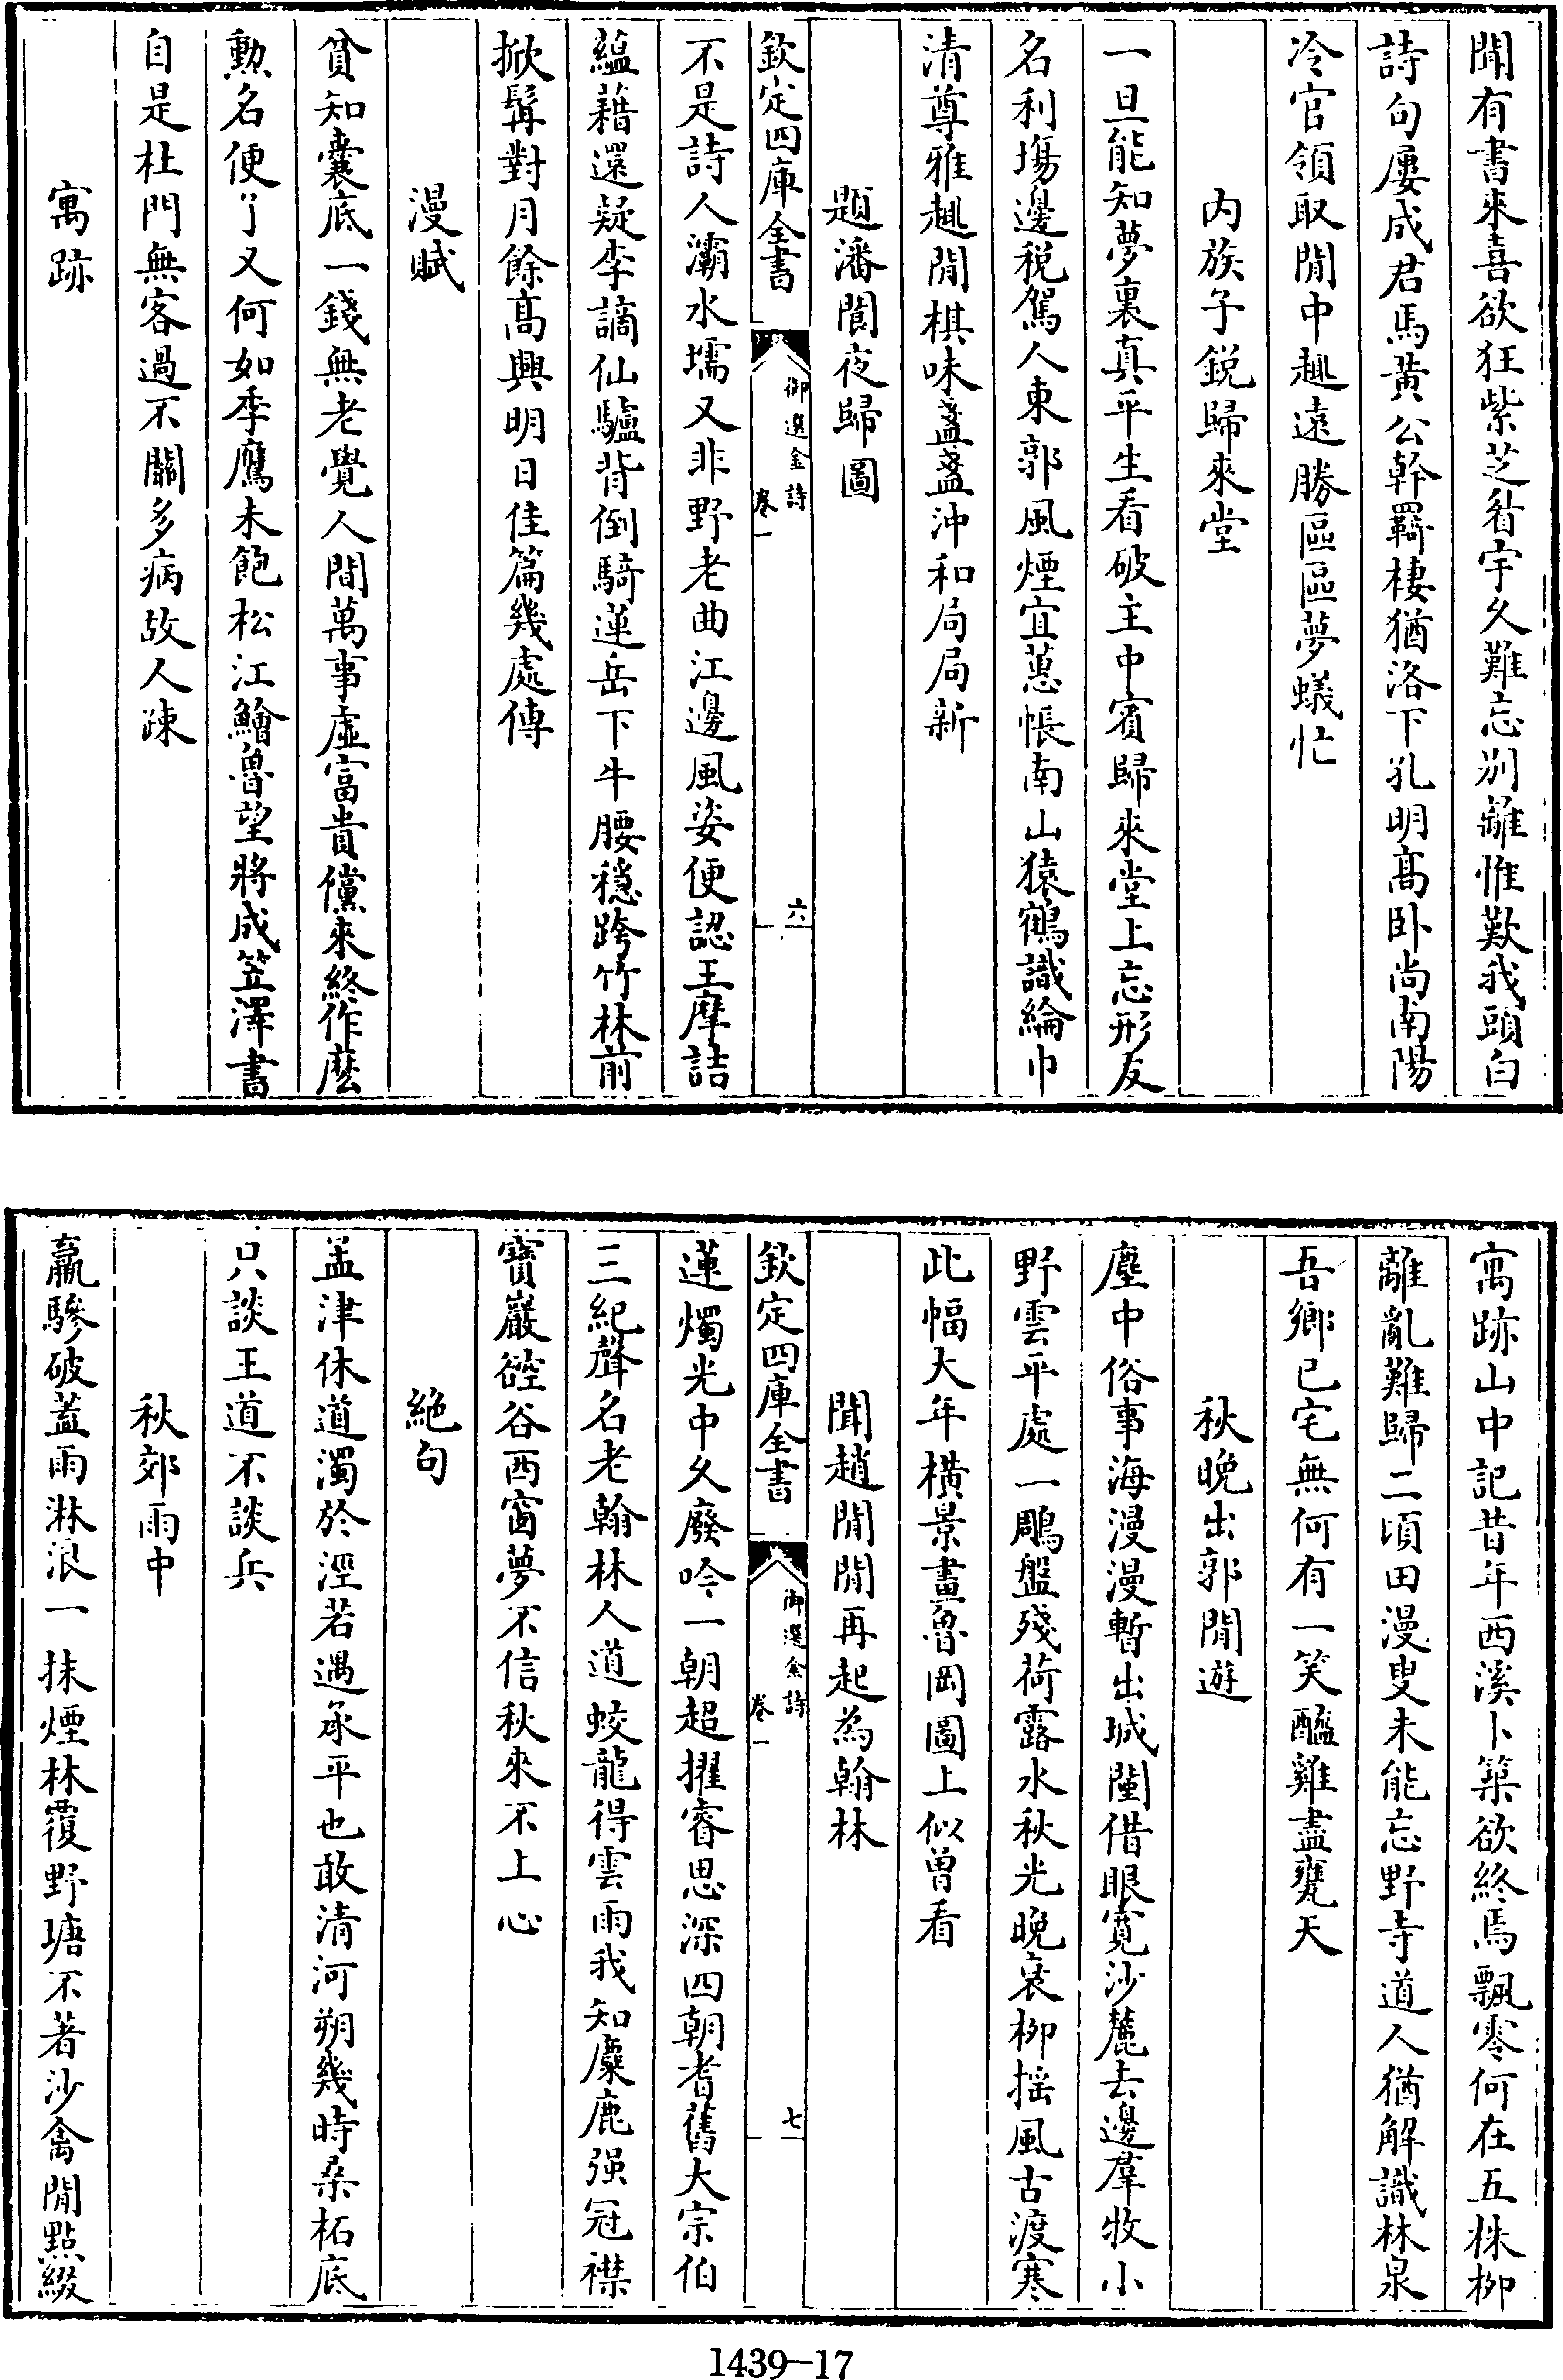 聞有書來喜欲狂紫芝眉宇久難忘别離惟歎我頭白
詩句屢成君馬黄公幹羇棲猶洛下孔明髙卧尚南陽
冷官領取閒中趣遠勝區區夢蟻忙
内族子鋭歸來堂
一旦能知夢裏真平生看破主中賓歸來堂上忘形友
名利塲邊稅駕人東郭風煙宜蕙帳南山猿鶴識綸巾
清尊雅趣閒棋味盞盞沖和局局新
題潘閬夜歸圖
欽定四庫全書
御選金詩
卷一
六
不是詩人灞水壖又非野老曲江邊風姿便認王摩詰
蘊藉還疑李謫仙驢背倒騎蓮岳下牛腰穏跨竹林前
掀髯對月餘髙興明日佳篇幾處傳
漫賦
貧知囊底一錢無老覺人間萬事虛富貴儻來終作麽
勲名便了又何如季鷹未飽松江鱠魯望將成笠澤書
自是杜門無客過不關多病故人疎
寓跡
寓跡山中記昔年西溪卜築欲終焉飄零何在五株栁
離亂難歸二頃田漫叟未能忘野寺道人猶解識林泉
吾鄉已宅無何有一笑醯雞盡甕天
秋晚出郭閒遊
塵中俗事海漫漫暫出城闉借眼寛沙麓去邊羣牧小
野雲平處一鵰盤殘荷露水秋光晚衰栁揺風古渡寒
此幅大年横景畫魯岡圖上似曾看
聞趙閒閒再起為翰林
欽定四庫全書
御選金詩
卷一
七
蓮燭光中久廢吟一朝超擢睿思深四朝耆舊大宗伯
三紀聲名老翰林人道蛟龍得雲雨我知麋鹿强冠襟
寶巖硿谷西窗夢不信秋來不上心
絶句
孟津休道濁於涇若遇承平也敢清河朔幾時桑柘底
只談王道不談兵
秋郊雨中
羸驂破蓋雨淋浪一抹煙林覆野塘不著沙禽閒點綴
1439—17